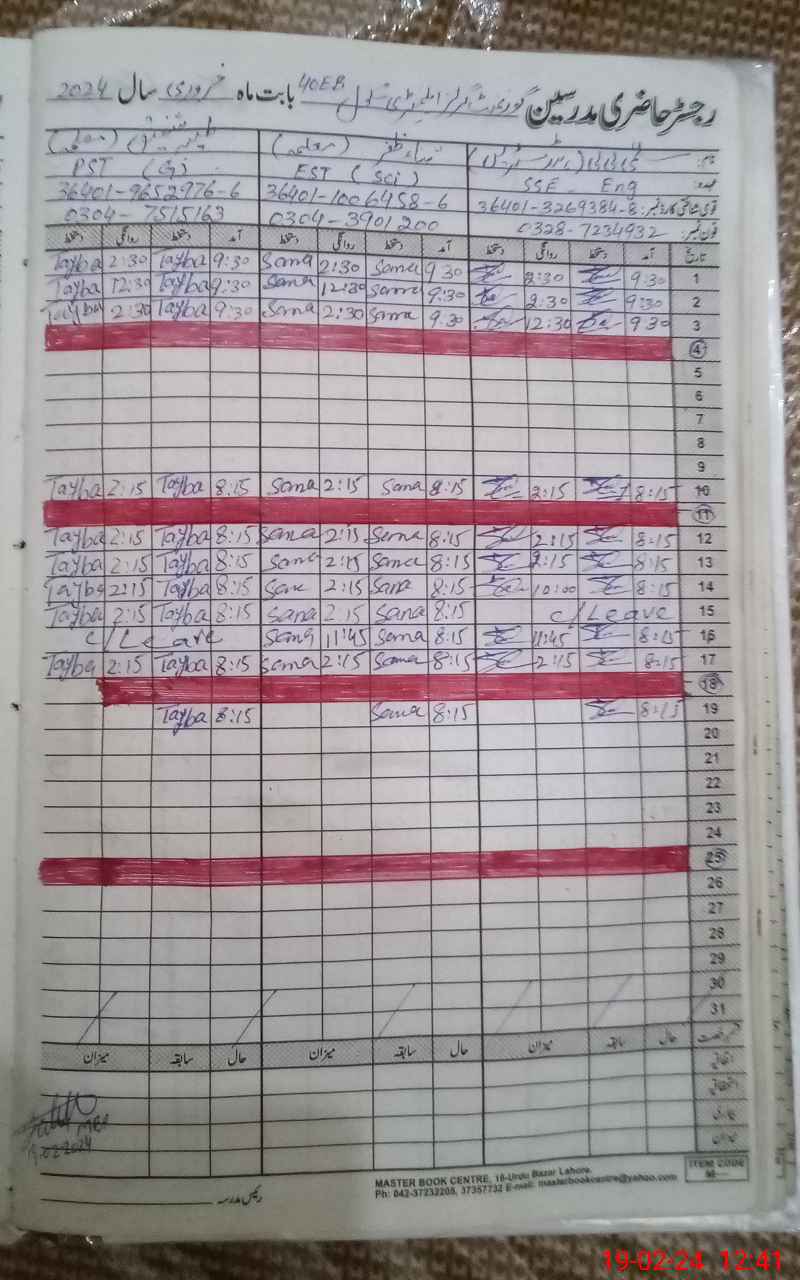 رجسٹر حاضری مدرسین گورنمنٹ گرلز ایلیمنٹری سکول 40EB بابت ماہ فروری سال 2024
(معلمہ) ثناء ظفر (معلمہ)
عہدہ: SSE Eng EST (Sci) PST (G)
قومی شناختی کارڈ نمبر: 36401-3269384-8 36401-1006458-6 36401-9652976-6
فون نمبر: 0328-7234932 0304-3901200 0304-7515163
تاریخ آمد دستخط روانگی دستخط آمد دستخط روانگی دستخط آمد دستخط روانگی دستخط
Tayba 2:30 Tayba 9:30 Sana 2:30 Sana 9:30 2:30 9:30 1
Tayba 12:30 Tayba 9:30 Sana 12:30 Sana 9:30 2:30 9:30 2
Tayba 2:30 Tayba 9:30 Sana 2:30 Sana 9:30 12:30 9:30 3
4
5
6
7
8
9
Tayba 2:15 Tayba 8:15 Sana 2:15 Sana 8:15 2:15 8:15 10
11
Tayba 2:15 Tayba 8:15 Sana 2:15 Sana 8:15 2:15 8:15 12
Tayba 2:15 Tayba 8:15 Sana 2:15 Sana 8:15 2:15 8:15 13
Tayba 2:15 Tayba 8:15 Sana 2:15 Sana 8:15 10:00 8:15 14
Tayba 2:15 Tayba 8:15 Sana 2:15 Sana 8:15 c/Leave 15
c/Leave Sana 11:45 Sana 8:15 11:45 8:15 16
Tayba 2:15 Tayba 8:15 Sana 2:15 Sana 8:15 2:15 8:15 17
18
Tayba 8:15 Sana 8:15 8:15 19
20
21
22
23
24
25
26
27
28
29
30
31
حال سابقہ میزان حال سابقہ میزان حال سابقہ میزان
اتفاقی
استحقاقی
بیماری
میزان
19.02.2024
رئیس مدرسہ
MASTER BOOK CENTRE, 16-Urdu Bazar Lahore.
Ph: 042-37232205, 37357732 E-mail: masterbookcentre@yahoo.com
ITEM CODE
M—
19-02-24 12:41